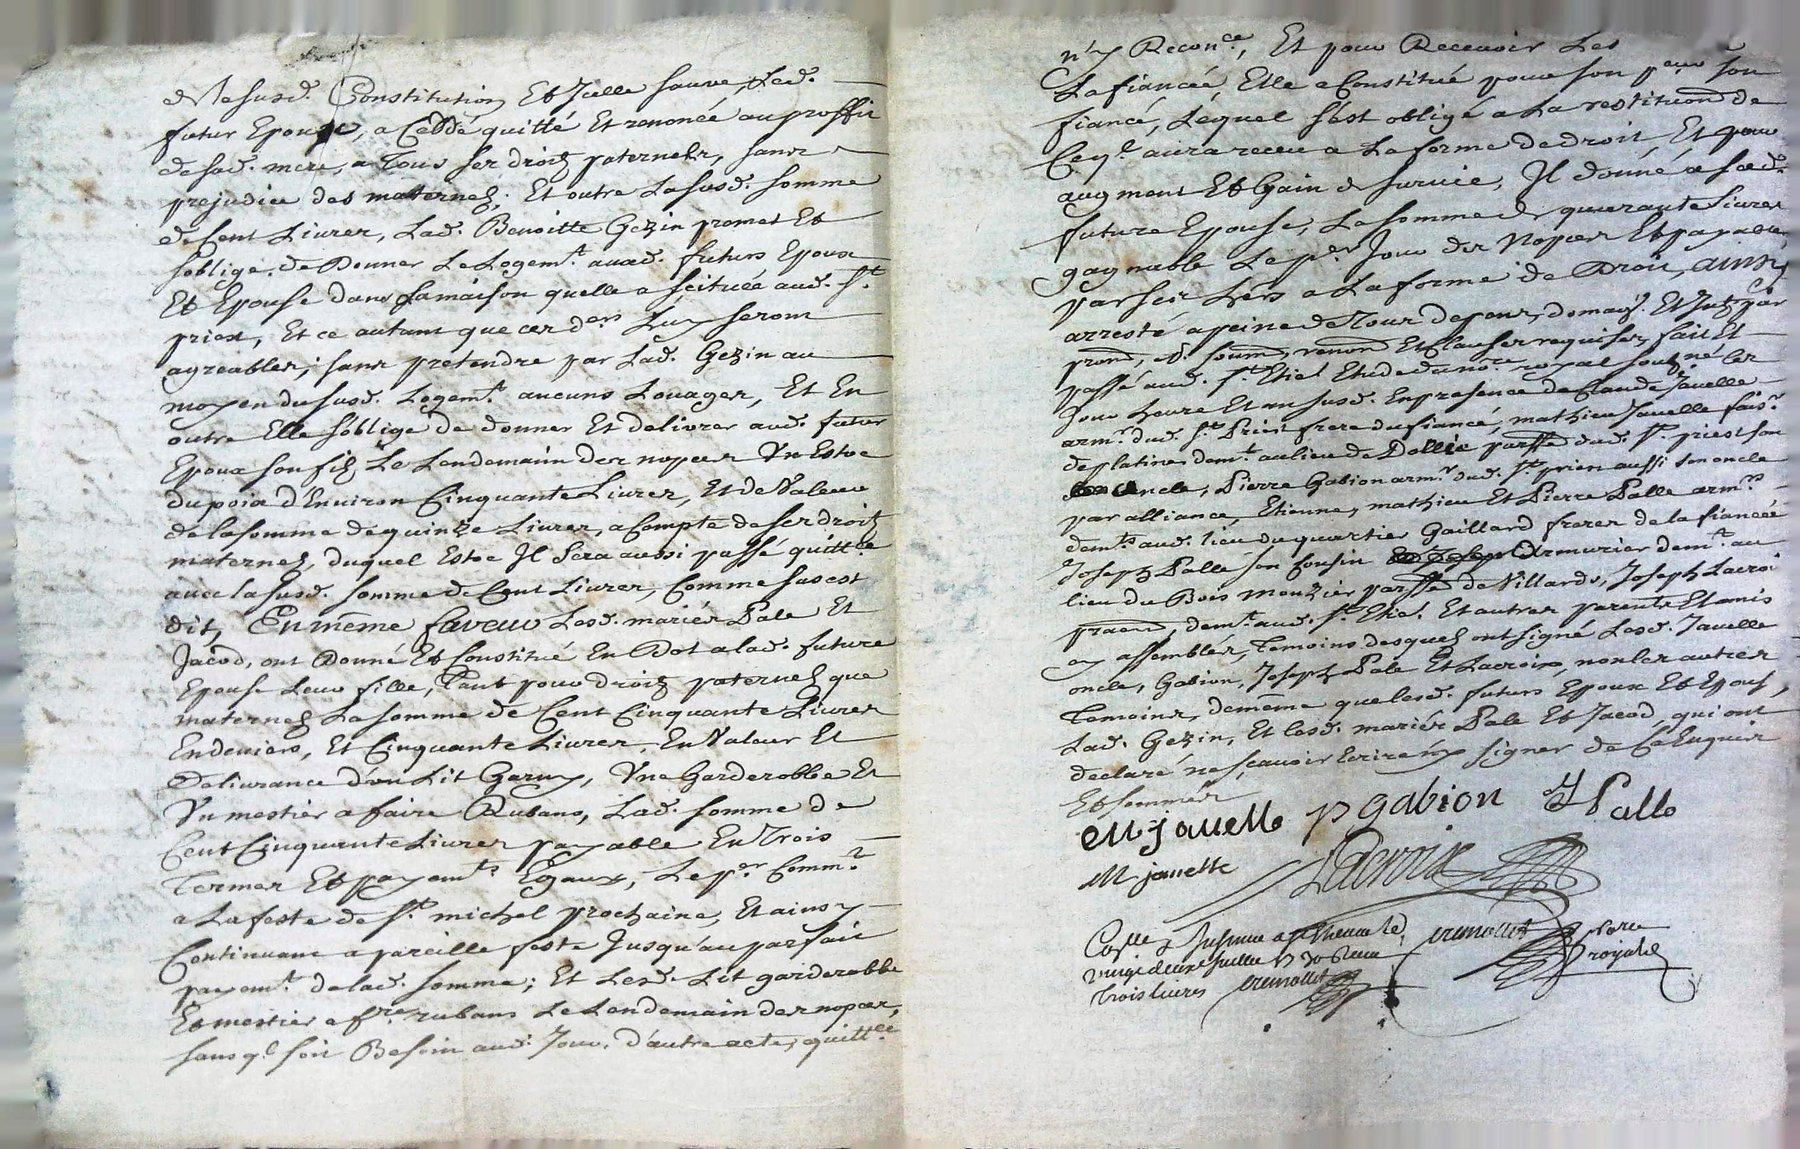 de la susd. Constitution Et Icelle sauve, Led.
futur Epoux, a Ceddé quitté Et renoncé au proffit
de sad. mere, a Tous ses droitz paternels, sans
prejudice des maternelz, Et outre La susd. somme
de Cent Livres, Lad. Benoitte Gezin promet Et
s'oblige de Donner Le Logemt. auxd. futurs Epoux
Et Epouse dans sa maison quelle a scituée aud. St.
priest, Et ce autant que ces ders. Luy seront
agreables, sans pretendre par Lad. Gezin au
moyen du susd. Logemt. aucuns Louages, Et En
outre Elle s'oblige de donner Et delivrer aud. futur
Epoux son filz Le Lendemain des nopces Un Estoc
du poid d'Environ Cinquante Livres, Et de Valeur
de la somme de quinze Livres, a Compte de ses droitz
maternelz, duquel Estoc Il sera aussi passé quittce
avec la susd. somme de Cent Livres, Comme sus est
dit, En même faveur Lesd. mariés Pale Et
Jacod, ont Donné Et Constitué En Dot a lad. future
Epouse Leur fille, Tant pour droitz paternelz que
maternelz La somme de Cent Cinquante Livres
En deniers, Et Cinquante Livres En Valeur Et
Delivrance d'un Lit Garny, Une Garderobbe Et
Un mestier a faire Rubans, Lad. somme de
Cent Cinquante Livres payable En Trois
Termes Et payemts. Egaux, Le per. Commt.
a La feste de St. michel prochaine, Et ainsy
Continuant a pareille feste Jusqu'au parfait
payemt. de lad. somme; Et Lesd. Lit garderobbe
Et mestier a fre. rubans Le Lendemain des nopces,
sans ql. soit Besoin aud. Jour, d'autre acte, quittce
ny Reconce, Et pour Recevoir Les
La fiancée, Elle a Constitué pour son pcur son
fiancé, Lequel s'est obligé a La restituon de
Ceql. aura receu a La forme de droit, Et pour
augment Et Gain de survie, Il donne a sad.
future Epouse, La somme de quarante Livres
gagnable Le per. Jour des Nopces Et payable
par ses hers a La forme de Droit, ainsy
arresté a peine de Tous depens, domages Et
prom, soum, renon Et Clauses requises, fait Et
passé aud. St. Etiene Etude du nore. royal soubzné Les
Jour heure Et an susd. En presence de Claude Javelle
armr. dud. St. Priest frere du fiancé, mathieu Javelle faisr.
de platines demt. au lieu de Pollie parsse dud. St. priest son
oncle, Pierre Gabion armr. dud. St. prien aussi son oncle
par alliance, Etienne, mathieu Et Pierre Palle armrs.
demts. aud. lieu du quartier Gaillard freres de la fiancée
Joseph Palle son Cousin Armurier demt. au
lieu du Bois monzier parsse de Villards, Joseph Lacroi
demt. aud. St. Etiene. Et autres parents Et amis
assemblés, Temoins desquelz ont signé Lesd. Javelle
oncle, Gabion, Joseph Pale Et Lacroix, non les autres
Temoins, de même que lesd. futurs Epoux Et Epouse,
Lad. Gezin, Et lesd. mariés Pale Et Jacod, qui ont
declaré ne scavoir Ecrire ny signer de Ce Enquis
Et sommés
M javelle p gabion J Palle
M javelle Lacroix
Colle
Trois livres
royal